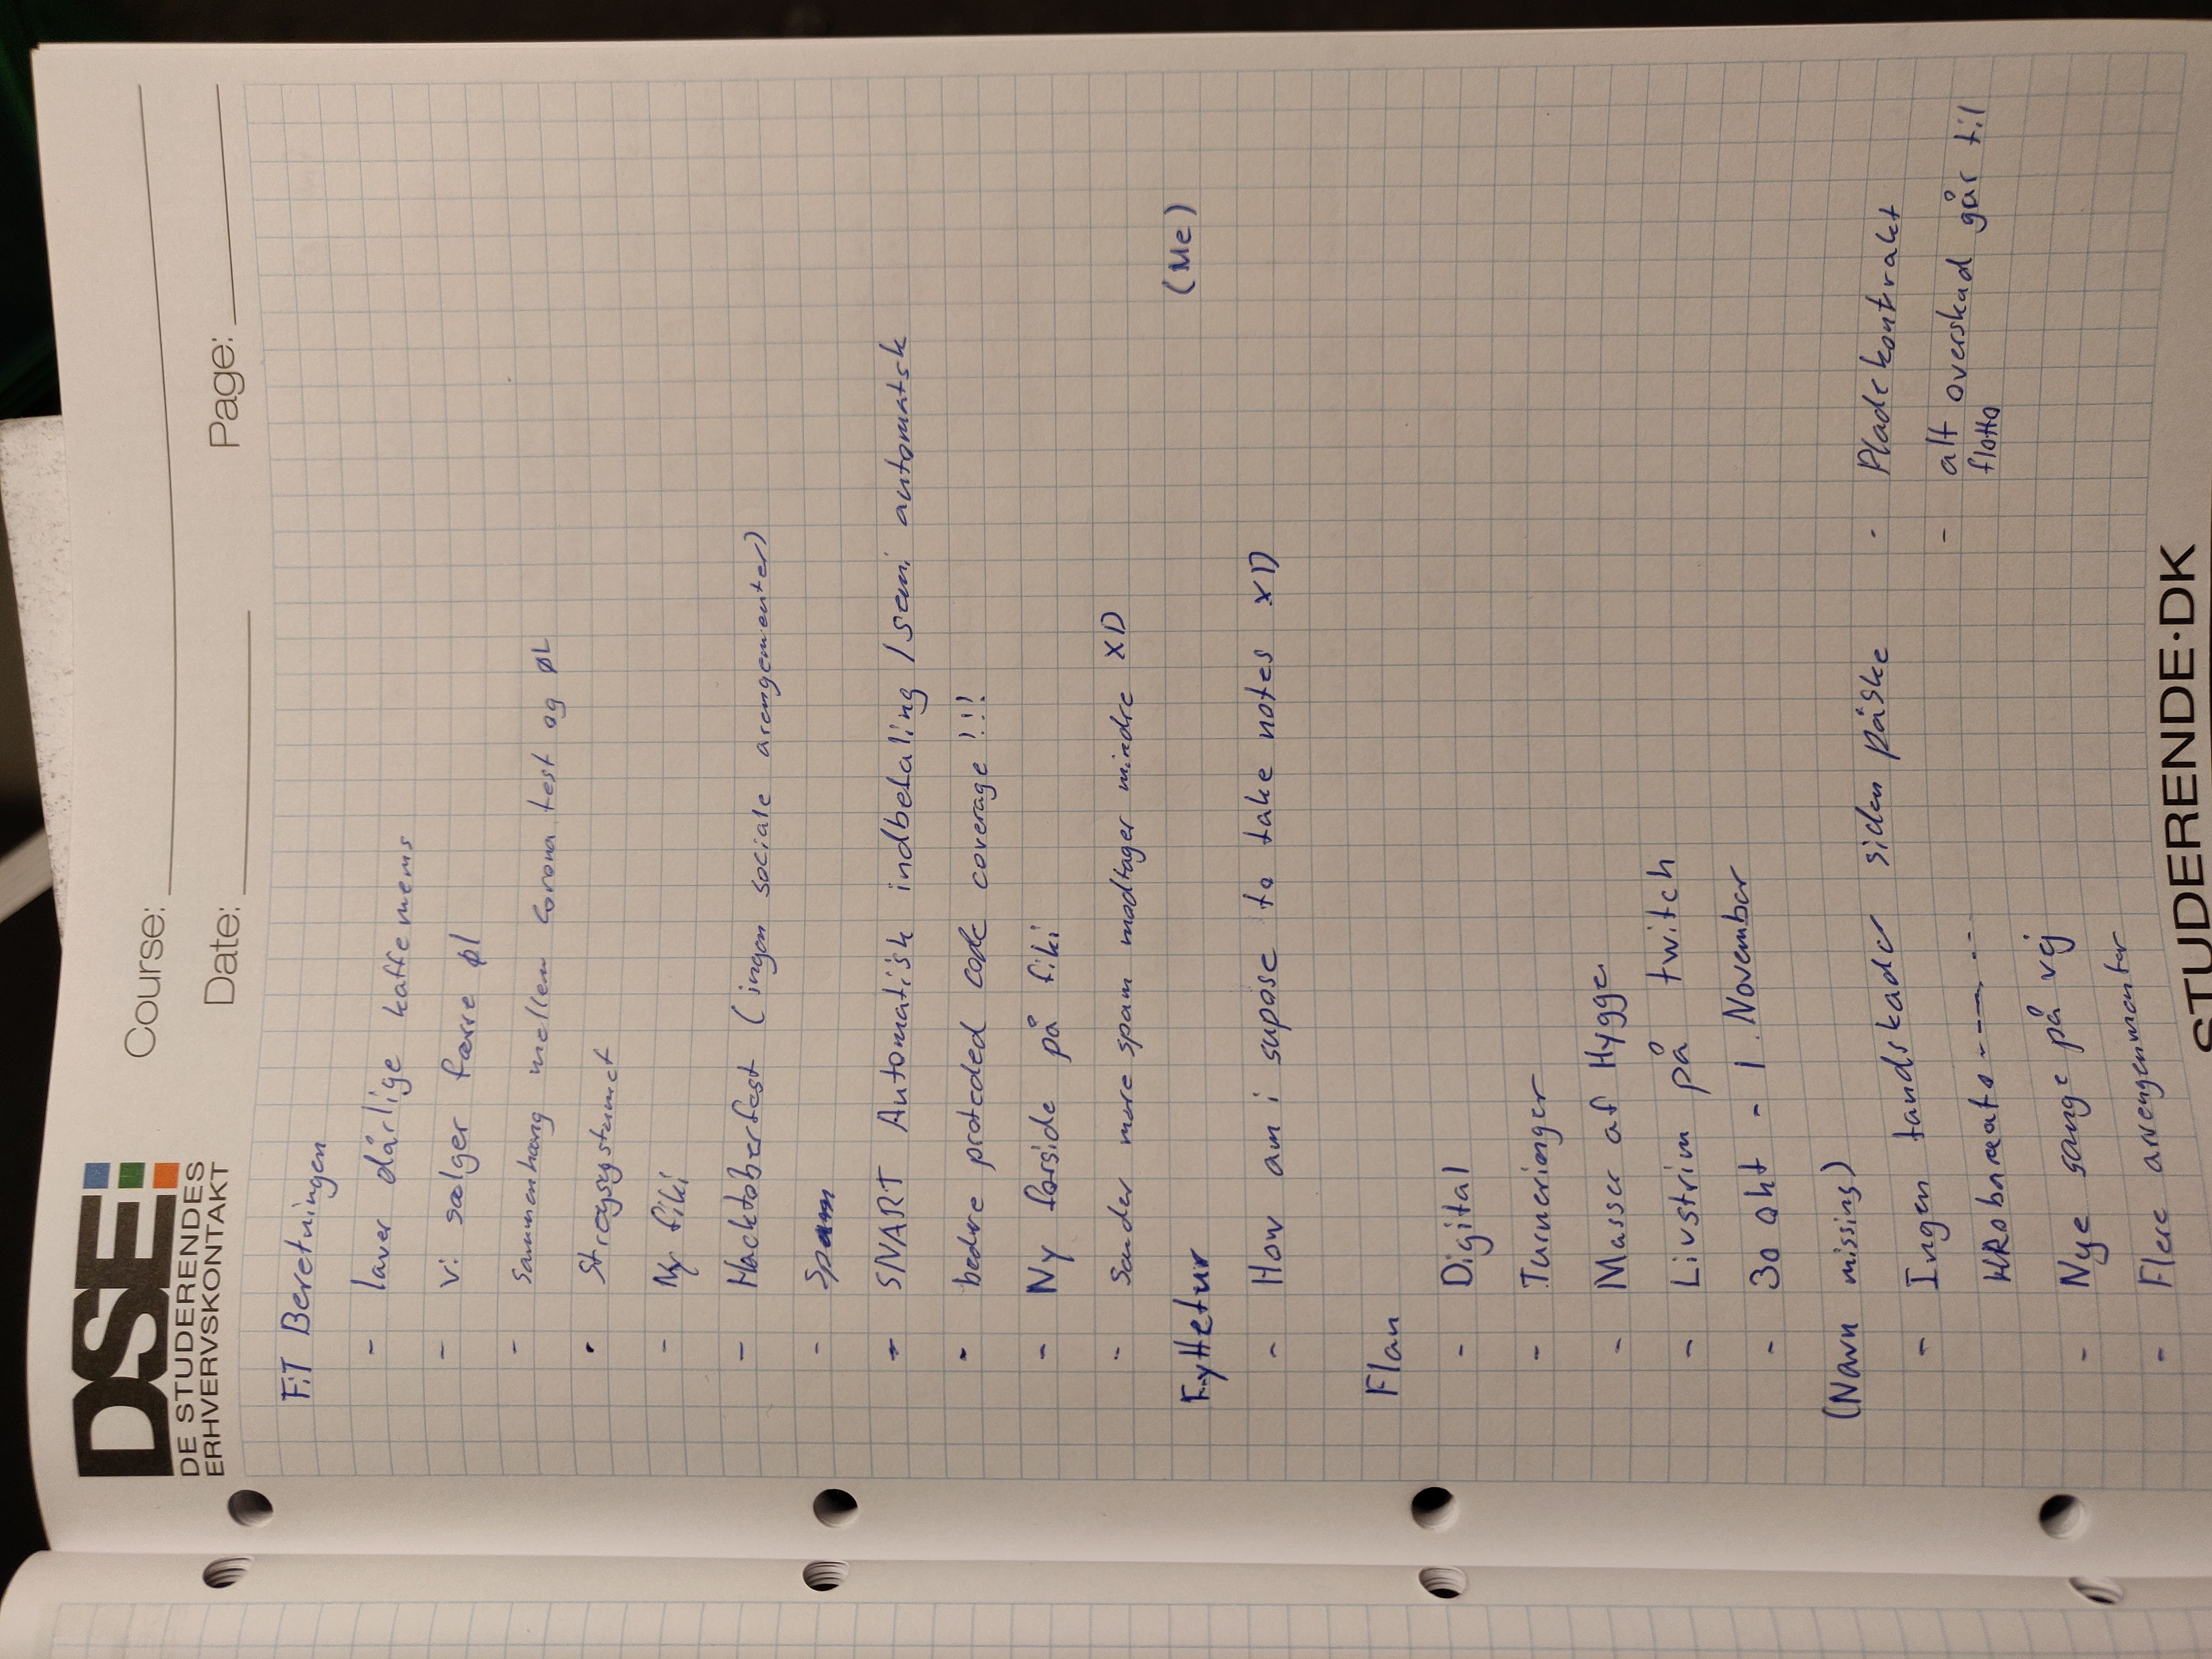 DSE
DE STUDERENDES
ERHVERVSKONTAKT
Course:
Date:
Page:
FIT Beretningen
- laver dårlige kaffe mems
- vi sælger færre øl
- Sammenhæng mellem corona test og ØL
- Stregsystemet
- Ny fiki
- Hacktoberfest (ingen sociale arengementer)
- Spam
- SMART Automatisk indbetaling / semi automatsk
- bedre proteded code coverage !!!
- Ny forside på fiki
- Sender more spam modtager mindre XD
Fyttetur (Me)
- How am i supose to take notes XD
Flan
- Digital
- Turneringer
- Masser af Hygge
- Livstrim på twitch
- 30 okt - 1. November
(Navn missing)
- Ingen tandskader siden påske
- Pladekontrakt
- alt overskud går til
flotto
- Nye sange på vej
- Flere arrengemnanter
STUDERENDE·DK